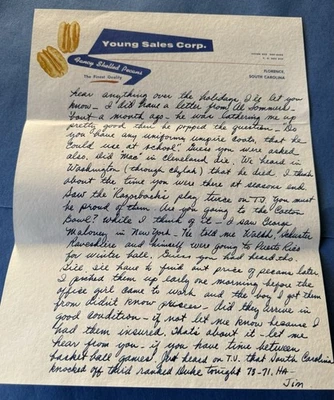 Young Sales Corp.
Fancy Shelled Pecans
The Finest Quality
FLORENCE
SOUTH CAROLINA
hear anything over the holidays I'll let you
know – I did have a letter from Al Sommers
'bout a month ago – he was buttering me up
pretty good then he popped the question – Do
you "have any uniforms umpire coats, that he
could use at school". Guess you were asked
also, did 'Mac' in Cleveland die. We heard in
Washington (through Chylak) that he died. I think
about the time you were there at seasons end
Saw the 'Razorbacks' play twice on T.V. you must
be proud of them. Are you going to the Cotton
Bowl? While I think of it – I saw Geo.
Maloney in New York – He told me Walsh, Valentine
and himself were going to Puerto Rico
for winter ball. Guess you had heard tho.
Bill will have to find out price of pecans later
I picked them up early one morning before the
office girl came to work and the boy I got them
from didn't know prices – did they arrive in
good condition – if not let me know because I
had them insured. That's about it – let me
hear from you – if you have time between
basketball games. Just heard on T.V. that South Carolina
knocked off third ranked Duke tonight 73-71, HA –
Jim